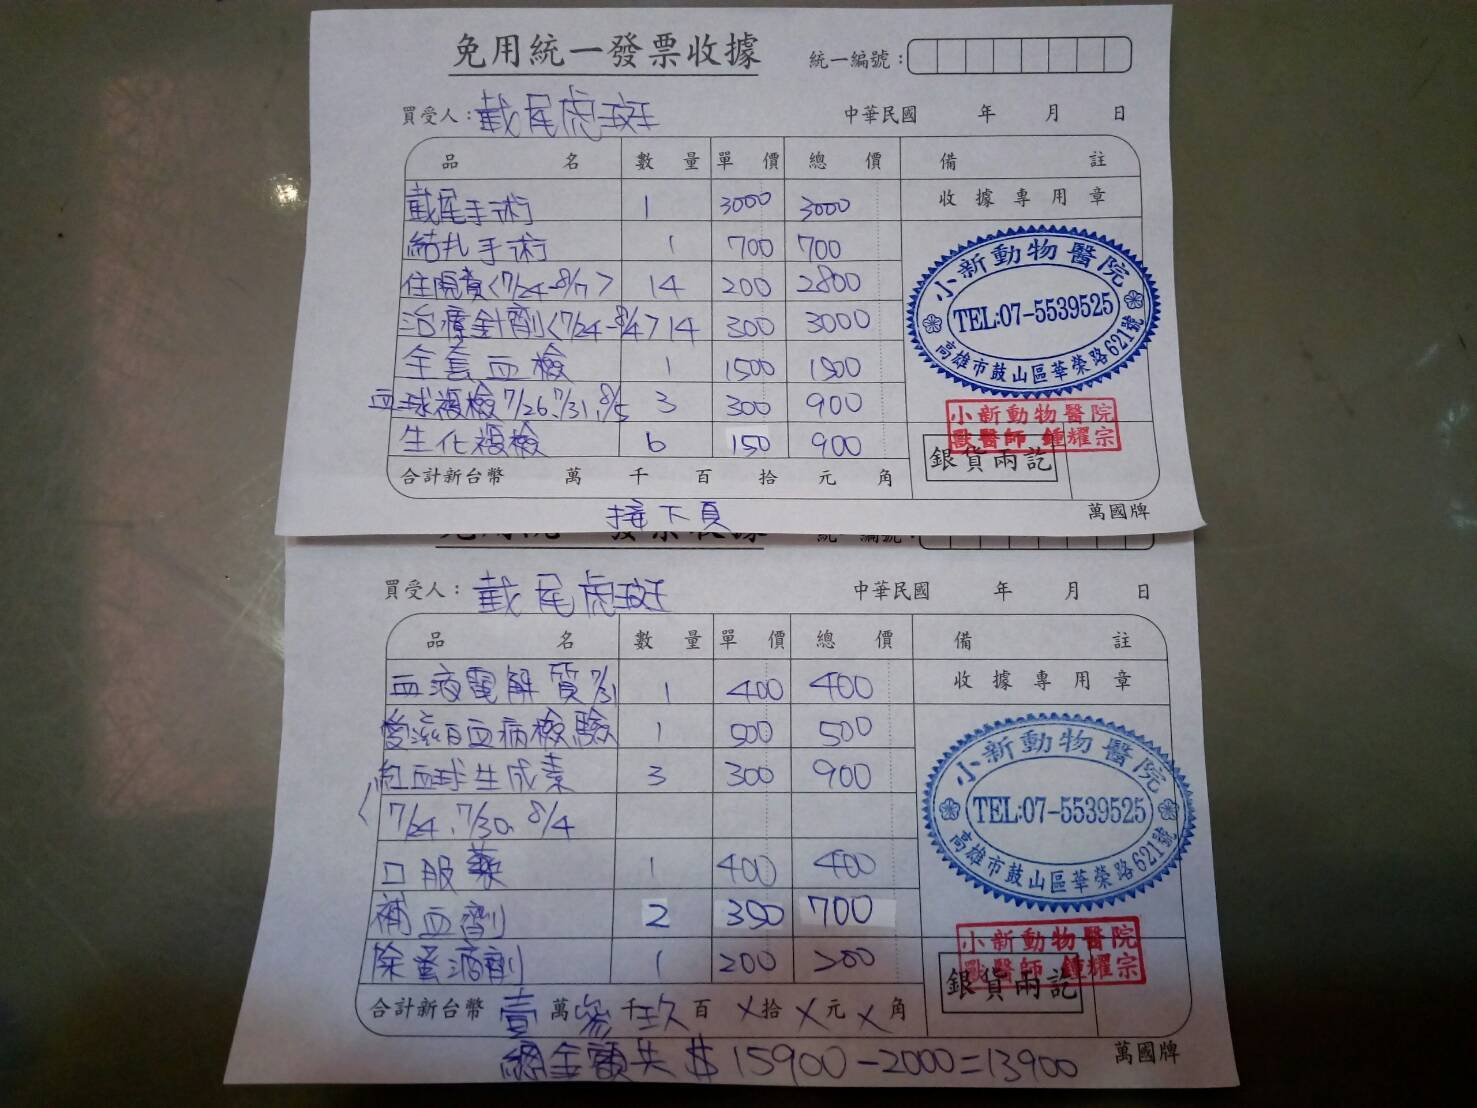 免用統一發票收據 統一編號：
買受人：截尾虎斑 中華民國 年 月 日
品名 數量 單價 總價 備註
收據專用章
截尾手術 1 3000 3000
結扎手術 1 700 700
住院費<7/24-8/7> 14 200 2800
治療針劑<7/24-8/4> 14 300 3000
全套血檢 1 1500 1500
血球複檢7/26、7/31、8/5 3 300 900
生化複檢 6 150 900
小新動物醫院
TEL:07-5539525
高雄市鼓山區華榮路621號
小新動物醫院
獸醫師 鍾耀宗
銀貨兩訖
合計新台幣 萬 千 百 拾 元 角
接下頁
萬國牌
免用統一發票收據 統一編號：
買受人：截尾虎斑 中華民國 年 月 日
品名 數量 單價 總價 備註
收據專用章
血液電解質7/31 1 400 400
愛滋白血病檢驗 1 500 500
紅血球生成素 3 300 900
<7/24、7/30、8/4
口服藥 1 400 400
補血劑 2 350 700
除蚤滴劑 1 200 200
小新動物醫院
TEL:07-5539525
高雄市鼓山區華榮路621號
小新動物醫院
獸醫師 鍾耀宗
銀貨兩訖
合計新台幣 壹萬參千玖百X拾X元X角
總金額共 $15900-2000=13900
萬國牌